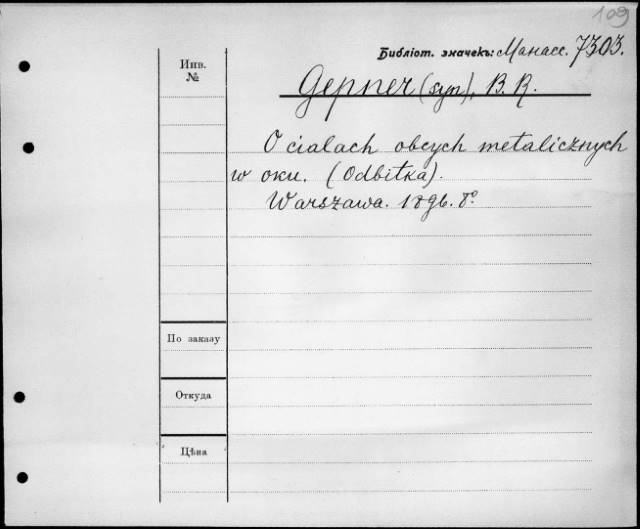 109
Библіот. значекъ: Манасс. 7303.
Инв.
№
Gepner (syn), B. R.
O cialach obcych metalicznych
w oku. (Odbitka).
Warszawa. 1896. 8º
По заказу
Откуда
Цѣна